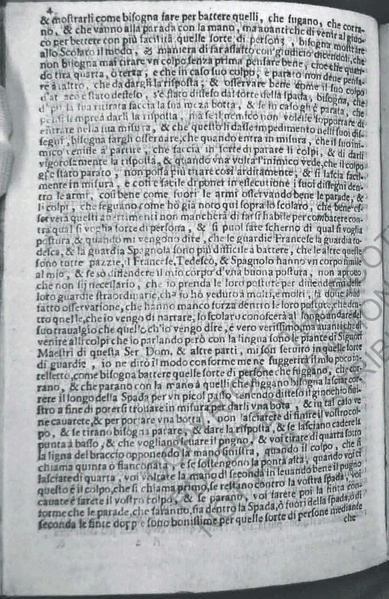 4
& mostrarli come bisogna fare per battere quelli, che fugano, che corra-
no, & che vanno alla parada con la mano, ma auanti che di venir al gio-
co per battere con più facilità quelle sorte di persone, bisogna mostrare
allo Scolaro il modo, & maniera di far assalto con giudicio dicendoli, che
non bisogna mai tirare vn colpo senza prima pensare bene, che
do tira quarta, o terza, e che in caso suo colpo, è parato non deue pensa-
re à altro, che da darli la risposta; & osservare bene come il suo colpo
stato difeso, s'è stato difeso dal forte della spada, bisogna, che
la sua ritirata faccia la sua meza botta, & se in caso gl'è parata, che
darli la risposta, ma se il nemico non volesse sopportare di
entrare nella sua misura, & che questo li dasse impedimento nelli suoi di-
segni, bisogna farghi osseruare, che quando entra in misura, che il suo ini-
mico tentile à partire, che faccia in sorte di parare li colpi, & di darli
vigorosamente la risposta, & quando vna volta l'inimico vede, che il colpo
gl'è stato parato, non possa più tirare così arditamente, & si lascia facil-
mente in misura, e così è facile di poner in essecutione i suoi dissegni den-
tro le armi, così bene come fuori le armi osservando bene le parade, &
li colpi, che seguano come hò già noto qui sopra lo scolaro, che bene os-
serverà questi auertimenti non mancherà di farsi habile per combattere con-
tra qual si voglia sorte di persone, & si può fare schermo di qual si voglia
postura, & quando mi vengono dire, che le guardie Francese la guardia to-
desca, & la guardia Spagnola sono più difficile à battere, che le altre quelle
sono torte pazzie, il Francese, Tedesco, & Spagnolo hanno vn corpo simile
al mio, & se sò difendere il mio corpo d'vna buona postura, non aprouo
che non sij necessario, che io prenda le loro posture per difendermi delle
loro guardie straordinarie, che s'io hò veduto à molti, e molti, & doue hò
fatto osseruatione, che hanno manco forza dentro le loro posture, che den-
tro quelle, che io vengo di narrare, lo scolaro conoscerà al longo andare del
suo trauaglio che quello, ch'io vengo dire, è vero verissimo, ma auanti che di
venire alli colpi che io parlando però con la lingua sono le piante di Signori
Maestri di questa Ser. Dom. & altre parti, mi son seruito in quelle sorte
di guardie, io ne dirò il modo conforme me ne suggerirà il mio poco in-
telletto, come bisogna battere quelle sorte di persone che fuggano, che cor-
rano, & che parano con la mano à quelli che fuggano bisogna lasciar cor-
rere il longo della Spada per vn picol passo tenendo disteso il ginochio sini-
stro à fine di potersi trouare in misura per darli vna bota, & in tal caso ve
ne cauarete, & per portare vna botta, non lasciarete di finire il vostro col-
po, & se tirano bisogna parare, & dare la risposta, & se lasciano cadere la
punta à basso, & che vogliano leuare il pugno, & voi tirare di quarta sotto
la ligna del braccio opponendo la mano sinistra, quando il colpo, che si
chiama quinta ò fianconata, e se sostengono la ponta alta, quando voi gli
lasciate di quarta, voi voltate la mano di seconda in leuando bene il pugno
questo è il colpo, che si chiama primo, se restano contro la vostra spada, voi
cauate è farete il vostro colpo, & se parano, voi farete poi la finta con-
forme che le parade, che faranno, sia dentro la Spada, ò fuori della spada, ò di
seconda le finte doppie sono bonissime per quelle sorte di persone mediante
che